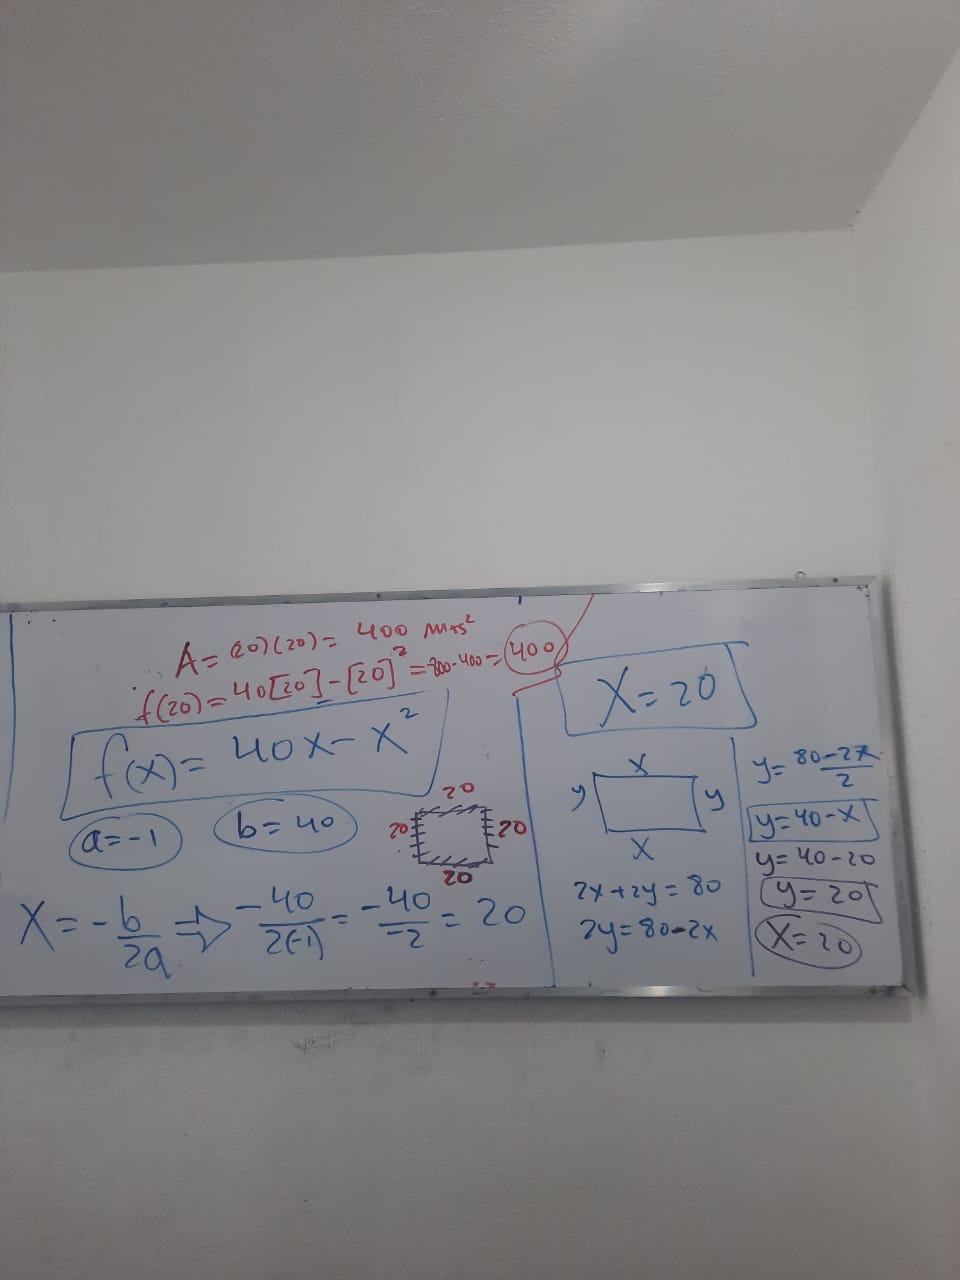 A = (20)(20) = 400 mts²
f(20) = 40[20] - [20]² = 800-400 = 400
f(x) = 40x - x²
a = -1
b = 40
20
20
20
20
X = -b/2a ⇒ -40/2(-1) = -40/-2 = 20
X = 20
x
y
y
X
2x + 2y = 80
2y = 80 - 2x
y = 80 - 2x/2
y = 40 - x
y = 40 - 20
y = 20
X = 20